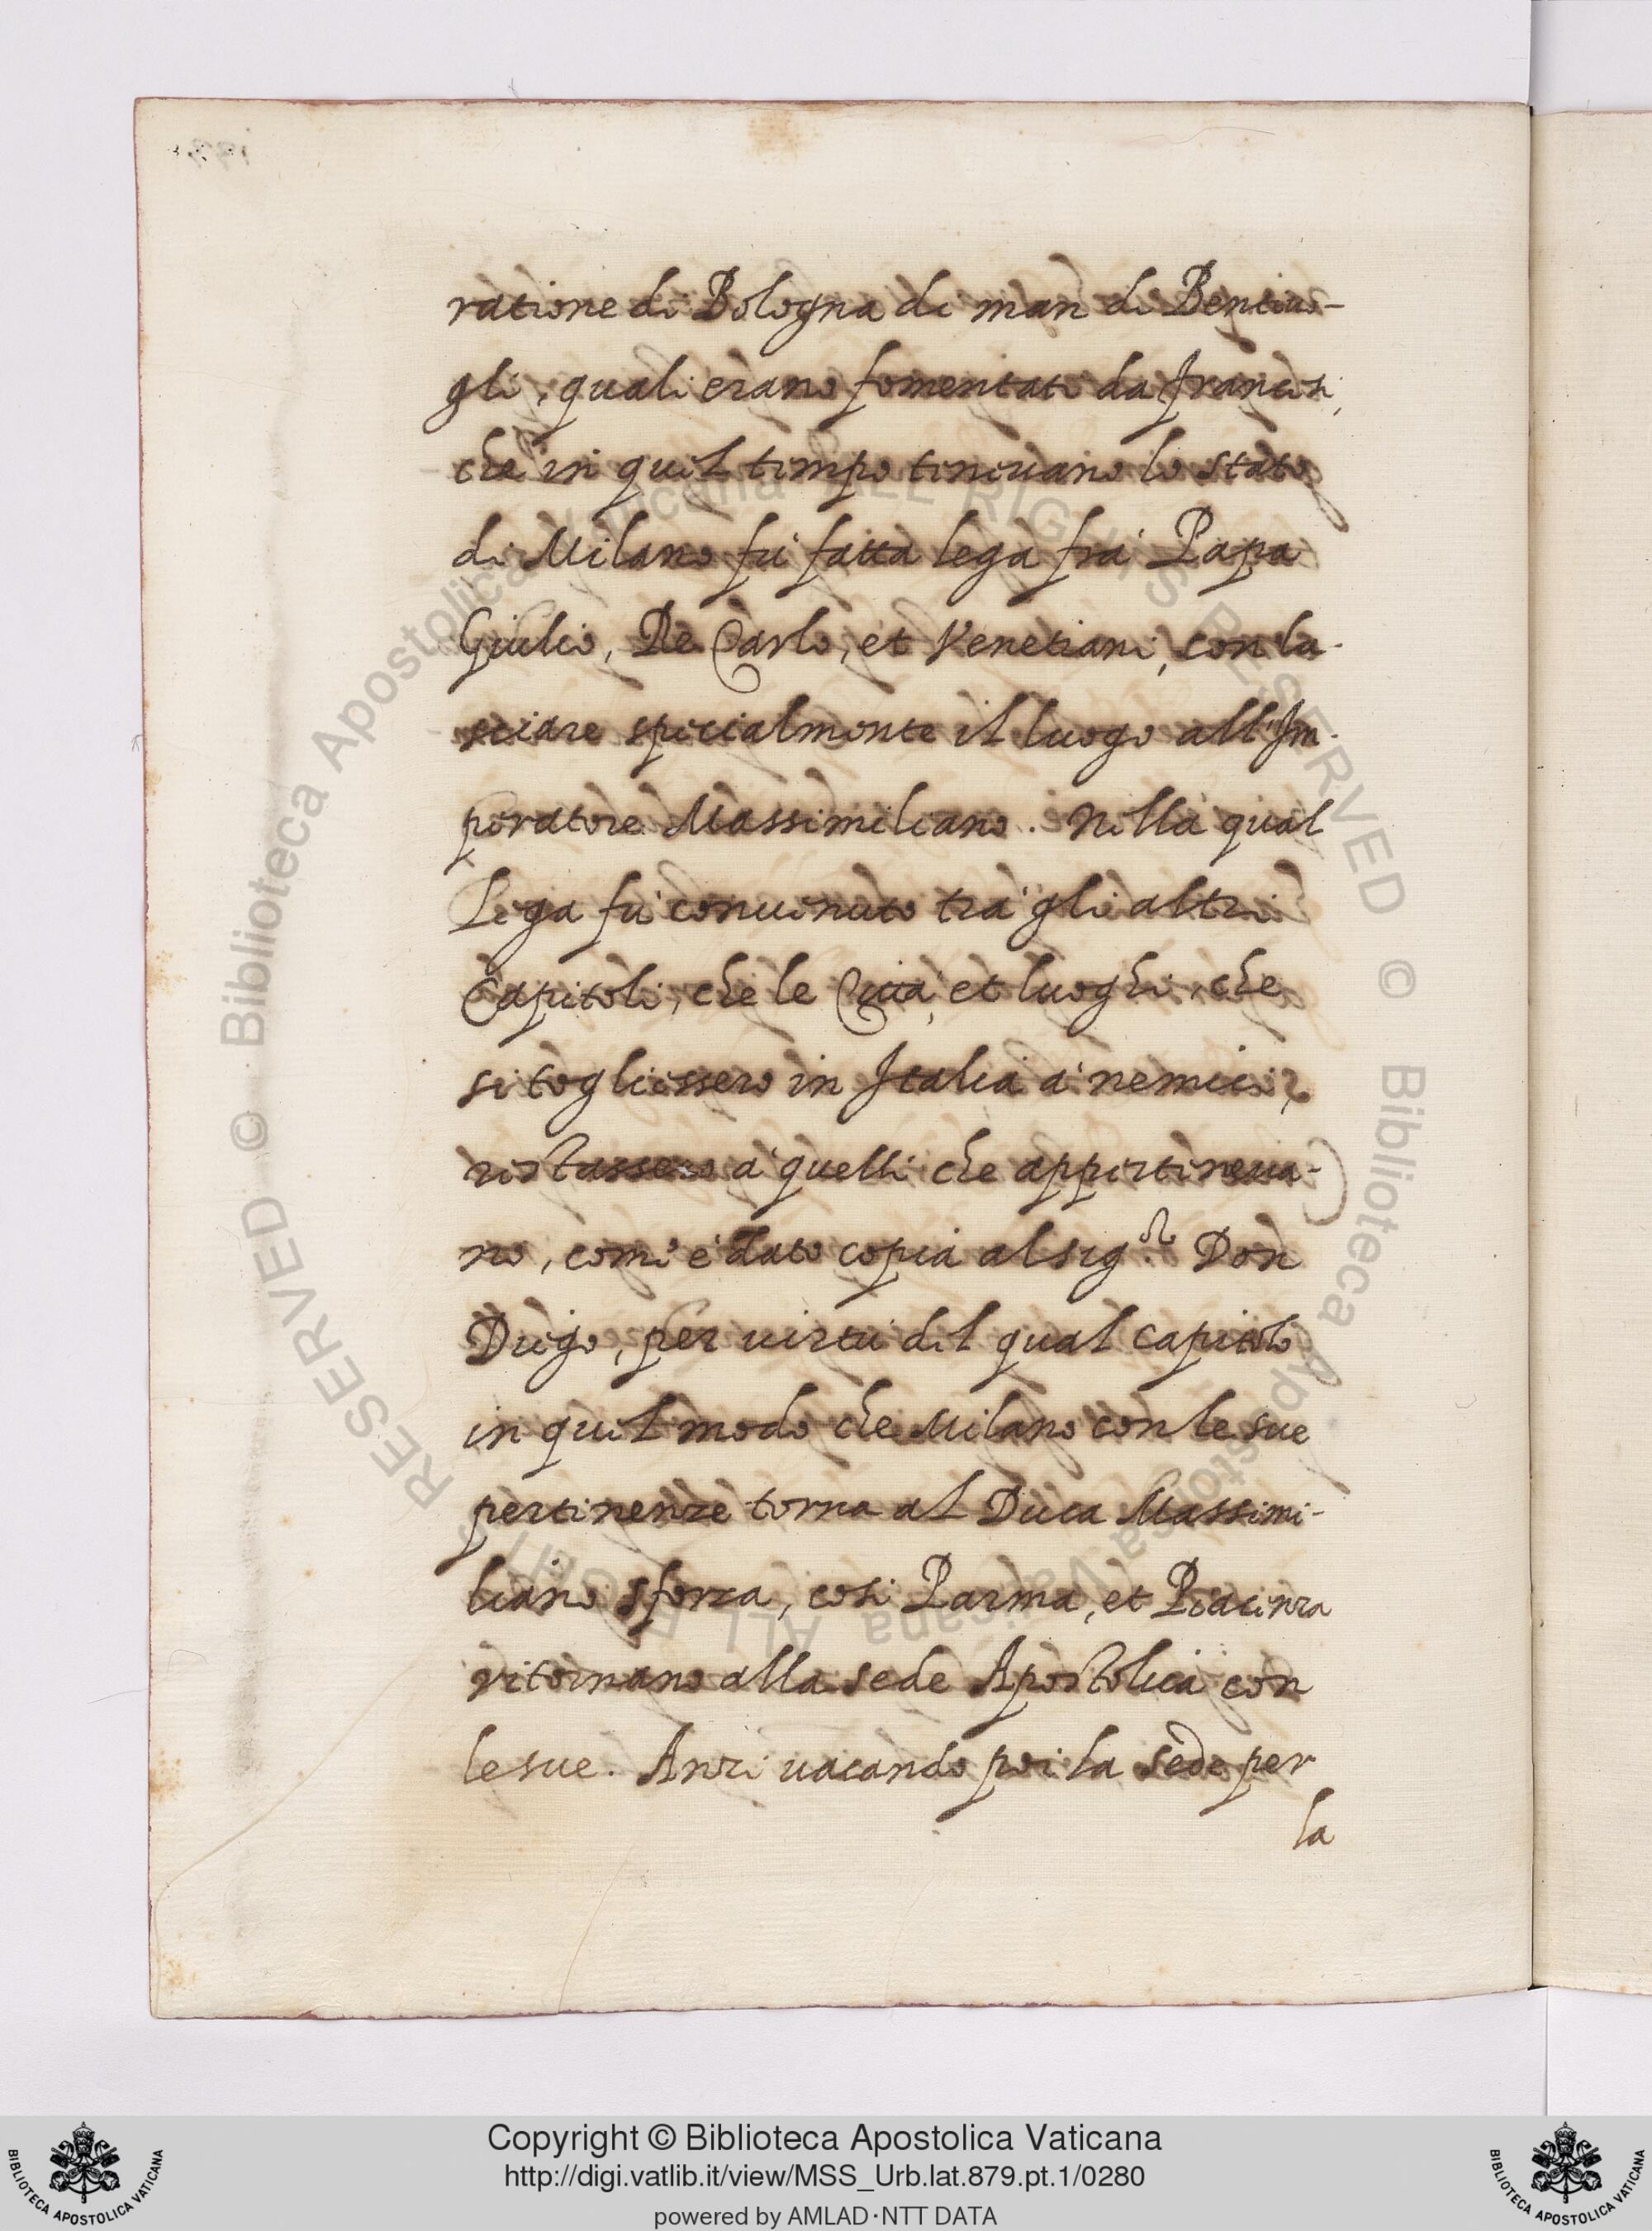 ratione di Bologna di man di Bentiuo-
gli, quali erano fomentati da francesi,
che in quel tempo teneuano lo stato
di Milano fu' fatta lega fra' Papa
Giulio, Re Carlo, et Venetiani, con la-
sciare specialmente il luogo all'Im-
peratore Massimiliano. Nella qual
Lega fu' conuenuto tra' gli altri
Capitoli, che le Città, et luoghi, che
si togliessero in Italia a' nemici,
restassero a' quelli che apperteneua-
no, come e' dato copia al sig.re Don
Diego, per uirtu' del qual capitolo
in quel modo che Milano con le sue
pertinenze torna al Duca Massimi-
liano sforza, cosi Parma, et Piacenza
ritornano alla sede Apostolica con
le sue. Anzi uacando poi la sede per
la
RESERVED © Biblioteca Apostolica Vaticana ALL RIGHTS RESERVED © Biblioteca Apostolica Vaticana ALL RIGHTS
Copyright © Biblioteca Apostolica Vaticana
http://digi.vatlib.it/view/MSS_Urb.lat.879.pt.1/0280
powered by AMLAD·NTT DATA
BIBLIOTECA APOSTOLICA VATICANA
BIBLIOTECA APOSTOLICA VATICANA